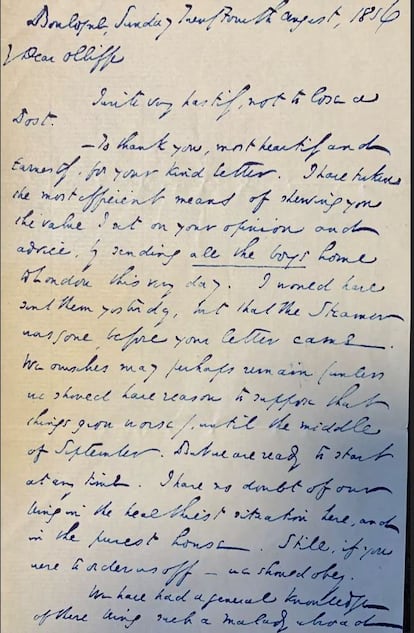 Boulogne, Sunday Twenty Fourth August, 1856
My Dear Olliffe
I write very hastily, not to lose a
Post.
— To thank you, most heartily and
earnestly, for your kind letter. I have taken
the most efficient means of shewing you
the value I set on your opinion and
advice, by sending all the boys home
to London this very day. I would have
sent them yesterday, but that the Steamer
was gone, before your letter came.
We ourselves may perhaps remain (unless
we should have reason to suppose that
things grow worse), until the middle
of September. But we are ready to start
at any time. I have no doubt of our
being in the healthiest situation here, and
in the purest house. Still, if you
were to order us off — we should obey.
We have had a general knowledge
of there being such a malady abroad